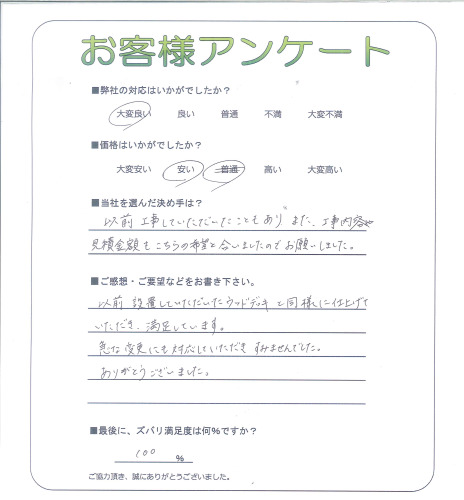 お客様アンケート
■弊社の対応はいかがでしたか？
大変良い 良い 普通 不満 大変不満
■価格はいかがでしたか？
大変安い 安い 普通 高い 大変高い
■当社を選んだ決め手は？
以前工事していただいたこともあり また、工事内容や
見積金額もこちらの希望と合いましたのでお願いしました。
■ご感想・ご要望などをお書き下さい。
以前設置していただいたウッドデッキと同様に仕上げて
いただき、満足しています。
急な変更にも対応していただき すみませんでした。
ありがとうございました。
■最後に、ズバリ満足度は何％ですか？
100 ％
ご協力頂き、誠にありがとうございました。